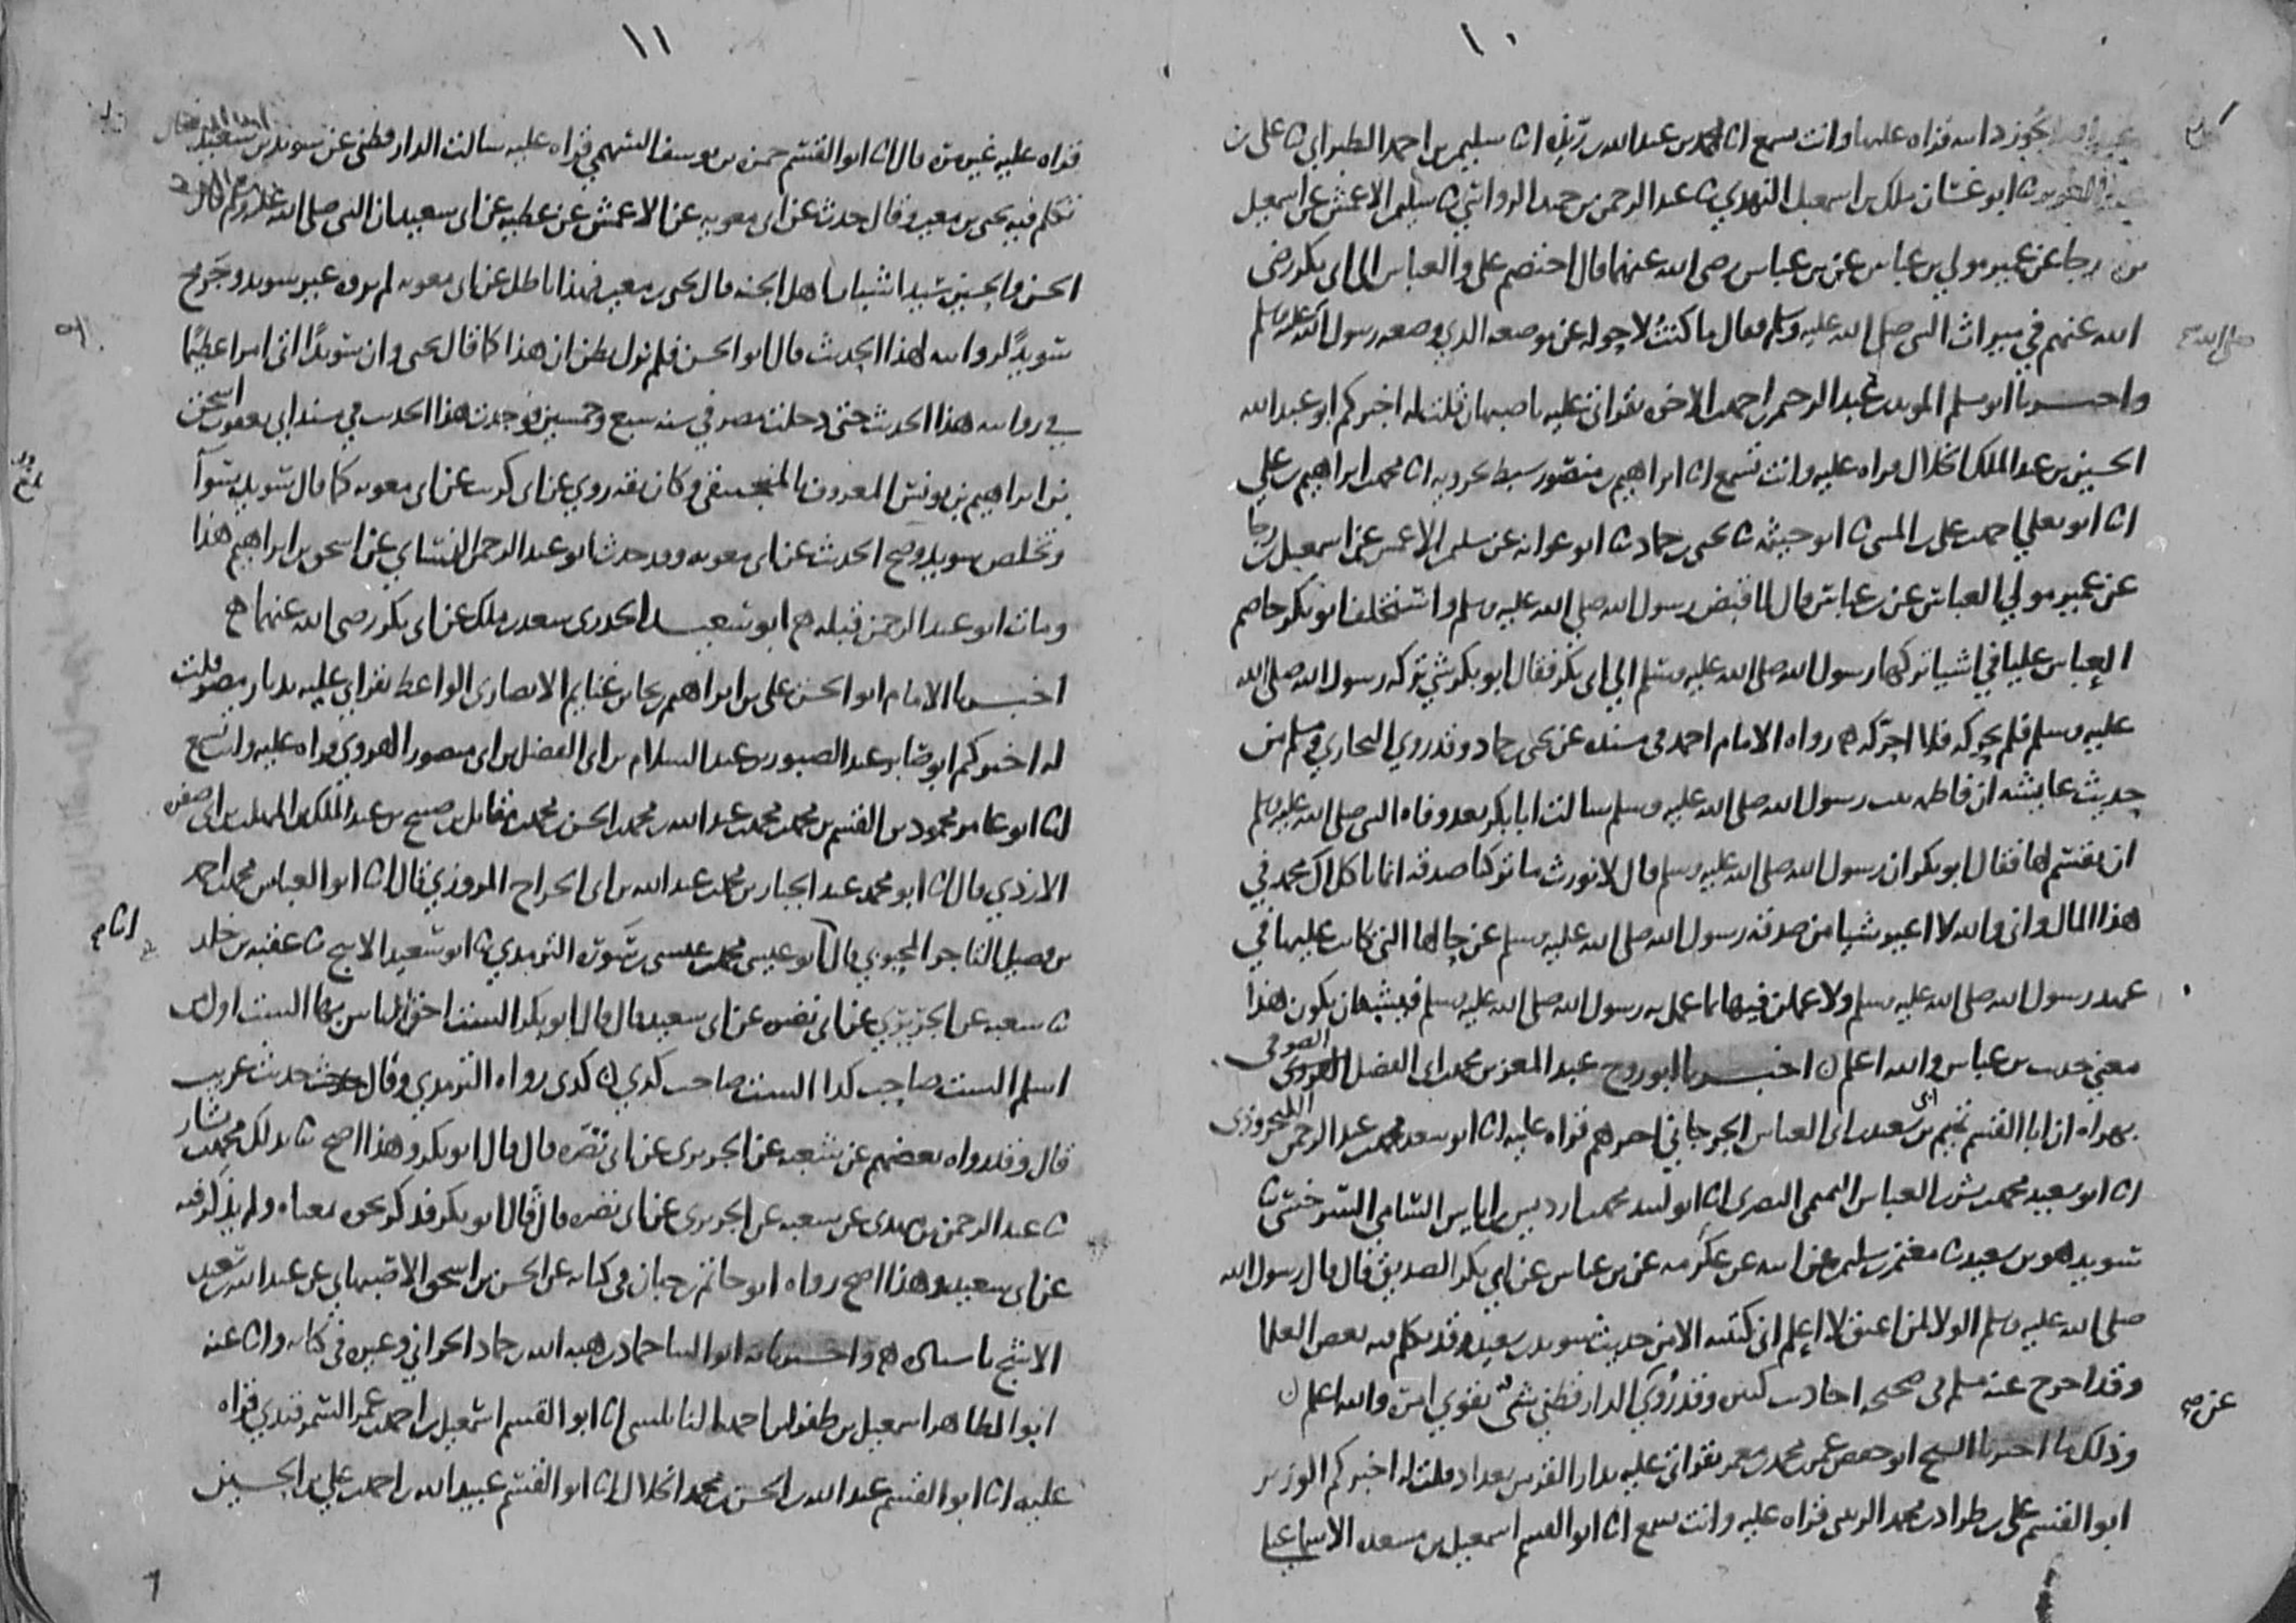 ١٠
الجوزدانيه قراه عليها وانت تسمع انا محمد بن عبد الله بن ريذه انا سليمن بن احمد الطبراني ثنا علي بن
ثنا ابو غسان ملك بن اسمعيل النهدي ثنا عبد الرحمن بن حميد الرواسي ثنا سليمن الاعمش عن اسمعيل
بن رجا عن عمير مولي بن عباس عن بن عباس رضي الله عنهما قال اختصم علي والعباس الى ابي بكر رضي
الله عنهم في ميراث النبي صلى الله عليه وسلم فقال ما كنت لاحوله عن موضعه الذي وضعه رسول الله صلى الله عليه وسلم
واخبرنا ابو مسلم المويد بن عبد الرحيم بن احمد بن الاخوه بقراتي عليه باصبهان قلت له اخبركم ابو عبد الله
الحسين بن عبد الملك الخلال قراه عليه وانت تسمع انا ابراهيم بن منصور سبط بحرويه انا محمد بن ابراهيم بن علي
انا ابو يعلي احمد بن علي بن المثنى ثنا ابو خيثمه ثنا يحيى بن حماد ثنا ابو عوانه عن سليمن الاعمش عن اسمعيل بن رجا
عن عمير مولي العباس عن بن عباس قال لما قبض رسول الله صلى الله عليه وسلم واستخلف ابو بكر خاصم
العباس عليا في اشيا تركها رسول الله صلى الله عليه وسلم الي ابي بكر فقال ابو بكر شي تركه رسول الله صلى الله
عليه وسلم فلم يحركه فلا احركه ۞ رواه الامام احمد في مسنده عن يحيى بن حماد وقد روي البخاري ومسلم من
حديث عايشه ان فاطمه بنت رسول الله صلى الله عليه وسلم سالت ابا بكر بعد وفاه النبي صلى الله عليه وسلم
ان يقسم لها فقال ابو بكر ان رسول الله صلى الله عليه وسلم قال لا نورث ما تركنا صدقه انما ياكل ال محمد في
هذا المال واني والله لا اغير شيا من صدقه رسول الله صلى الله عليه وسلم عن حالها التي كانت عليها في
عهد رسول الله صلى الله عليه وسلم ولا عملن فيها بما عمل به رسول الله صلى الله عليه وسلم فيشبه ان يكون هذا
معني حديث بن عباس والله اعلم ن اخبرنا ابو روح عبد المعز بن محمد بن ابي الفضل الهروي الصوفي
بهراه ان ابا القسم تميم بن ابي سعيد بن ابي العباس الجرجاني اخبرهم قراه عليه انا ابو سعد محمد بن عبد الرحمن الكنجروذي
انا ابو سعيد محمد بن بشر بن العباس التميمي البصري انا ابو لبيد محمد بن ادريس بن اياس السامي السرخسي ثنا
سويد هو بن سعيد ثنا معتمر بن سليمن عن ابيه عن عكرمه عن بن عباس عن ابي بكر الصديق قال قال رسول الله
صلى الله عليه وسلم الولا لمن اعتق لا اعلم اني كتبته الا من حديث سويد بن سعيد وقد تكلم فيه بعض العلما
وقد اخرج عنه مسلم في صحيحه احاديث كثيره وقد روي الدارقطني شي يقوي امره والله اعلم ن
وذلك ما اخبرنا الشيخ ابو حفص عمر بن محمد بن معمر بقراتي عليه بدار القز من بغداد قلت له اخبركم الوزير
ابو القسم علي بن طراد بن محمد الزينبي قراه عليه وانت تسمع انا ابو القسم اسمعيل بن مسعده الاسماعيلي
صلى الله
عن صح
١١
قراه عليه غير مره قال انا ابو القسم حمزه بن يوسف السهمي قراه عليه سالت الدارقطني عن سويد بن سعيد
تكلم فيه يحيى بن معين وقال حدث عن ابي معويه عن الاعمش عن عطيه عن ابي سعيد ان النبي صلى الله عليه وسلم قال
الحسن والحسين سيدا شباب اهل الجنه قال يحيى بن معين فهذا باطل عن ابي معويه لم يروه غير سويد وجرح
سويد لروايته لهذا الحديث قال ابو الحسن فلم نزل نظن ان هذا كما قال يحيى وان سويدا اتى امرا عظيما
في روايته هذا الحديث حتى دخلت مصر في سنه سبع وخمسين فوجدت هذا الحديث في مسند ابي يعقوب اسحق
بن ابراهيم بن يونس المعروف بالمنجنيقي وكان ثقه روي عن ابي كريب عن ابي معويه كما قال سويد سوآ
وتخلص سويد وصح الحديث عن ابي معويه وقد حدث ابو عبد الرحمن النسائي عن اسحق بن ابراهيم هذا
ومات ابو عبد الرحمن قبله ۞ ابو سعيد الخدري سعد بن ملك عن ابي بكر رضي الله عنهما ۞
اخبرنا الامام ابو الحسن علي بن ابراهيم بن نجا بن غنايم الانصاري الواعظ بقراتي عليه بديار مصر قلت
له اخبركم ابو صابر عبد الصبور بن عبد السلام بن ابي الفضل بن ابي منصور الهروي قراه عليه وانت تسمع
انا ابو عامر محمود بن القسم بن محمد بن محمد بن عبد الله بن محمد بن الحسين بن محمد بن مقاتل بن صبيح بن عبد الملك بن المهلب بن ابي صفره
الازدي قال انا ابو محمد عبد الجبار بن محمد بن عبد الله بن ابي الجراح المروزي قال انا ابو العباس محمد بن احمد
بن فضيل التاجر المحبوبي قال انا ابو عيسى محمد بن عيسى بن سوره الترمذي ثنا ابو سعيد الاشج ثنا عقبه بن خلد
ثنا سعبه عن الجريري عن ابي نضره عن ابي سعيد قال قال ابو بكر الست احق الناس بها الست اول من
اسلم الست صاحب كذا الست صاحب كذى كذى رواه الترمذي وقال حديث غريب
قال وقد رواه بعضهم عن شعبه عن الجريري عن ابي نضره قال قال ابو بكر وهذا اصح ثنا بذلك محمد بن بشار
ثنا عبد الرحمن بن مهدي عن سعبه عن الجريري عن ابي نضره قال قال ابو بكر فذكر نحوه بمعناه ولم يذكر فيه
عن ابي سعيد وهذا اصح رواه ابو حاتم بن حبان في كتابه عن الحسن بن اسحق الاصبهاني عن عبد الله بن سعيد
الاشج باسناده ۞ واخبرنا به ابو الثنا حماد بن هبه الله بن حماد الحراني وغيره في كتابه وانا عنه
ابو الطاهر اسمعيل بن طغولس احمد النابلسي انا ابو القسم اسمعيل بن احمد بن عمر السمرقندي قراه
عليه انا ابو القسم عبد الله بن الحسن بن محمد الخلال انا ابو القسم عبيد الله بن احمد بن علي بن الحسين